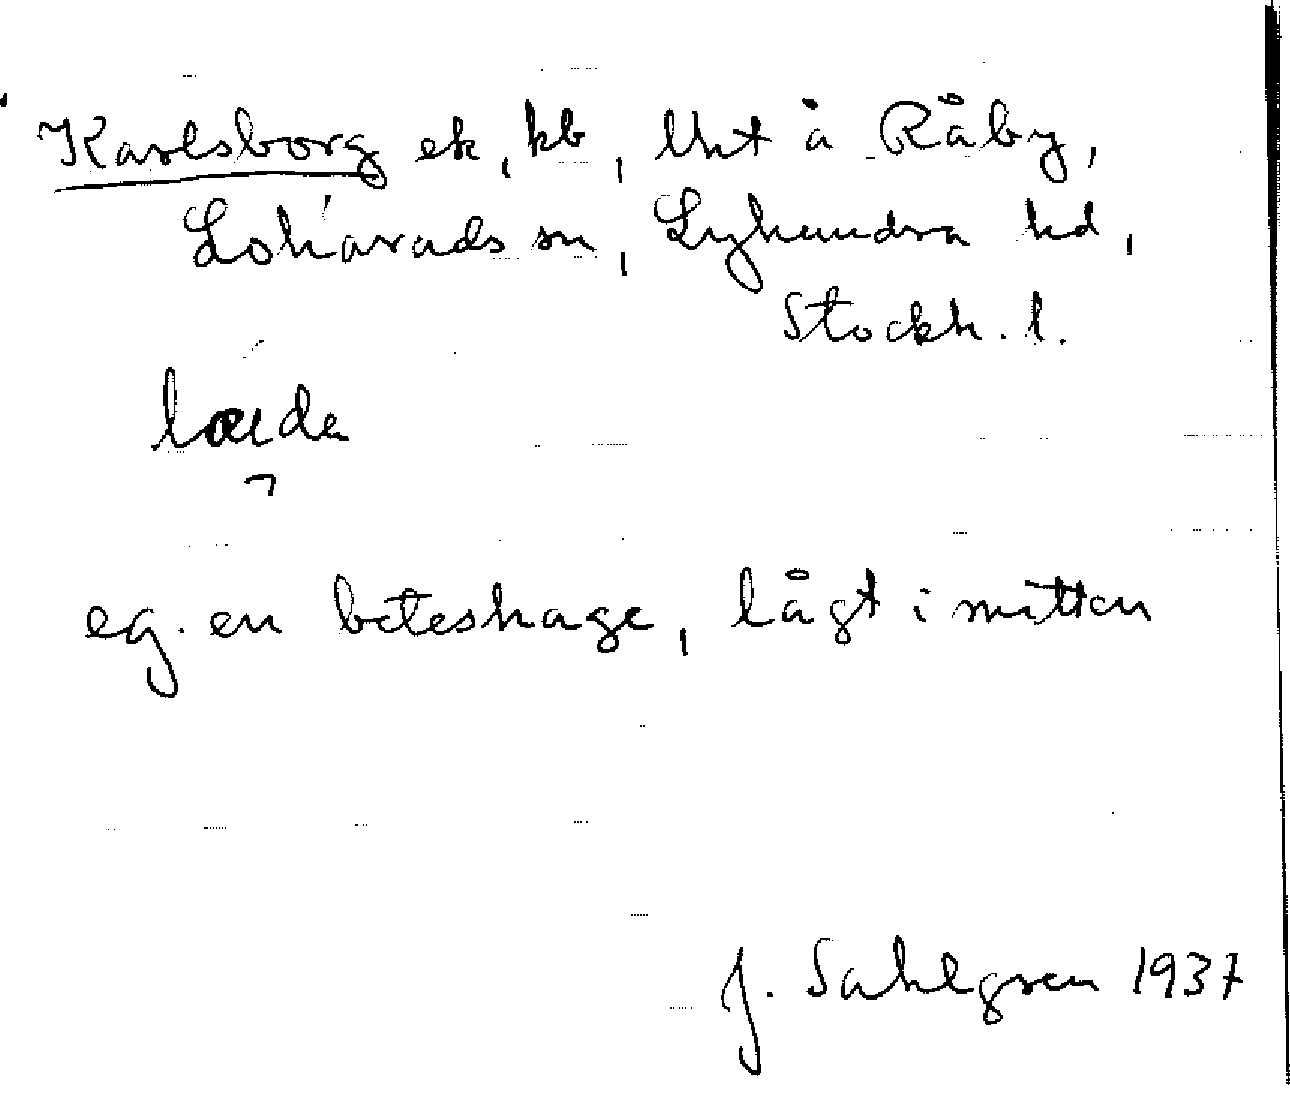 Karlsborg ek, kb, lht å Råby,
Lohärads sn, Lyhundra hd,
Stockh. l.
eg. en beteshage, lågt i mitten
J. Sahlgren 1937